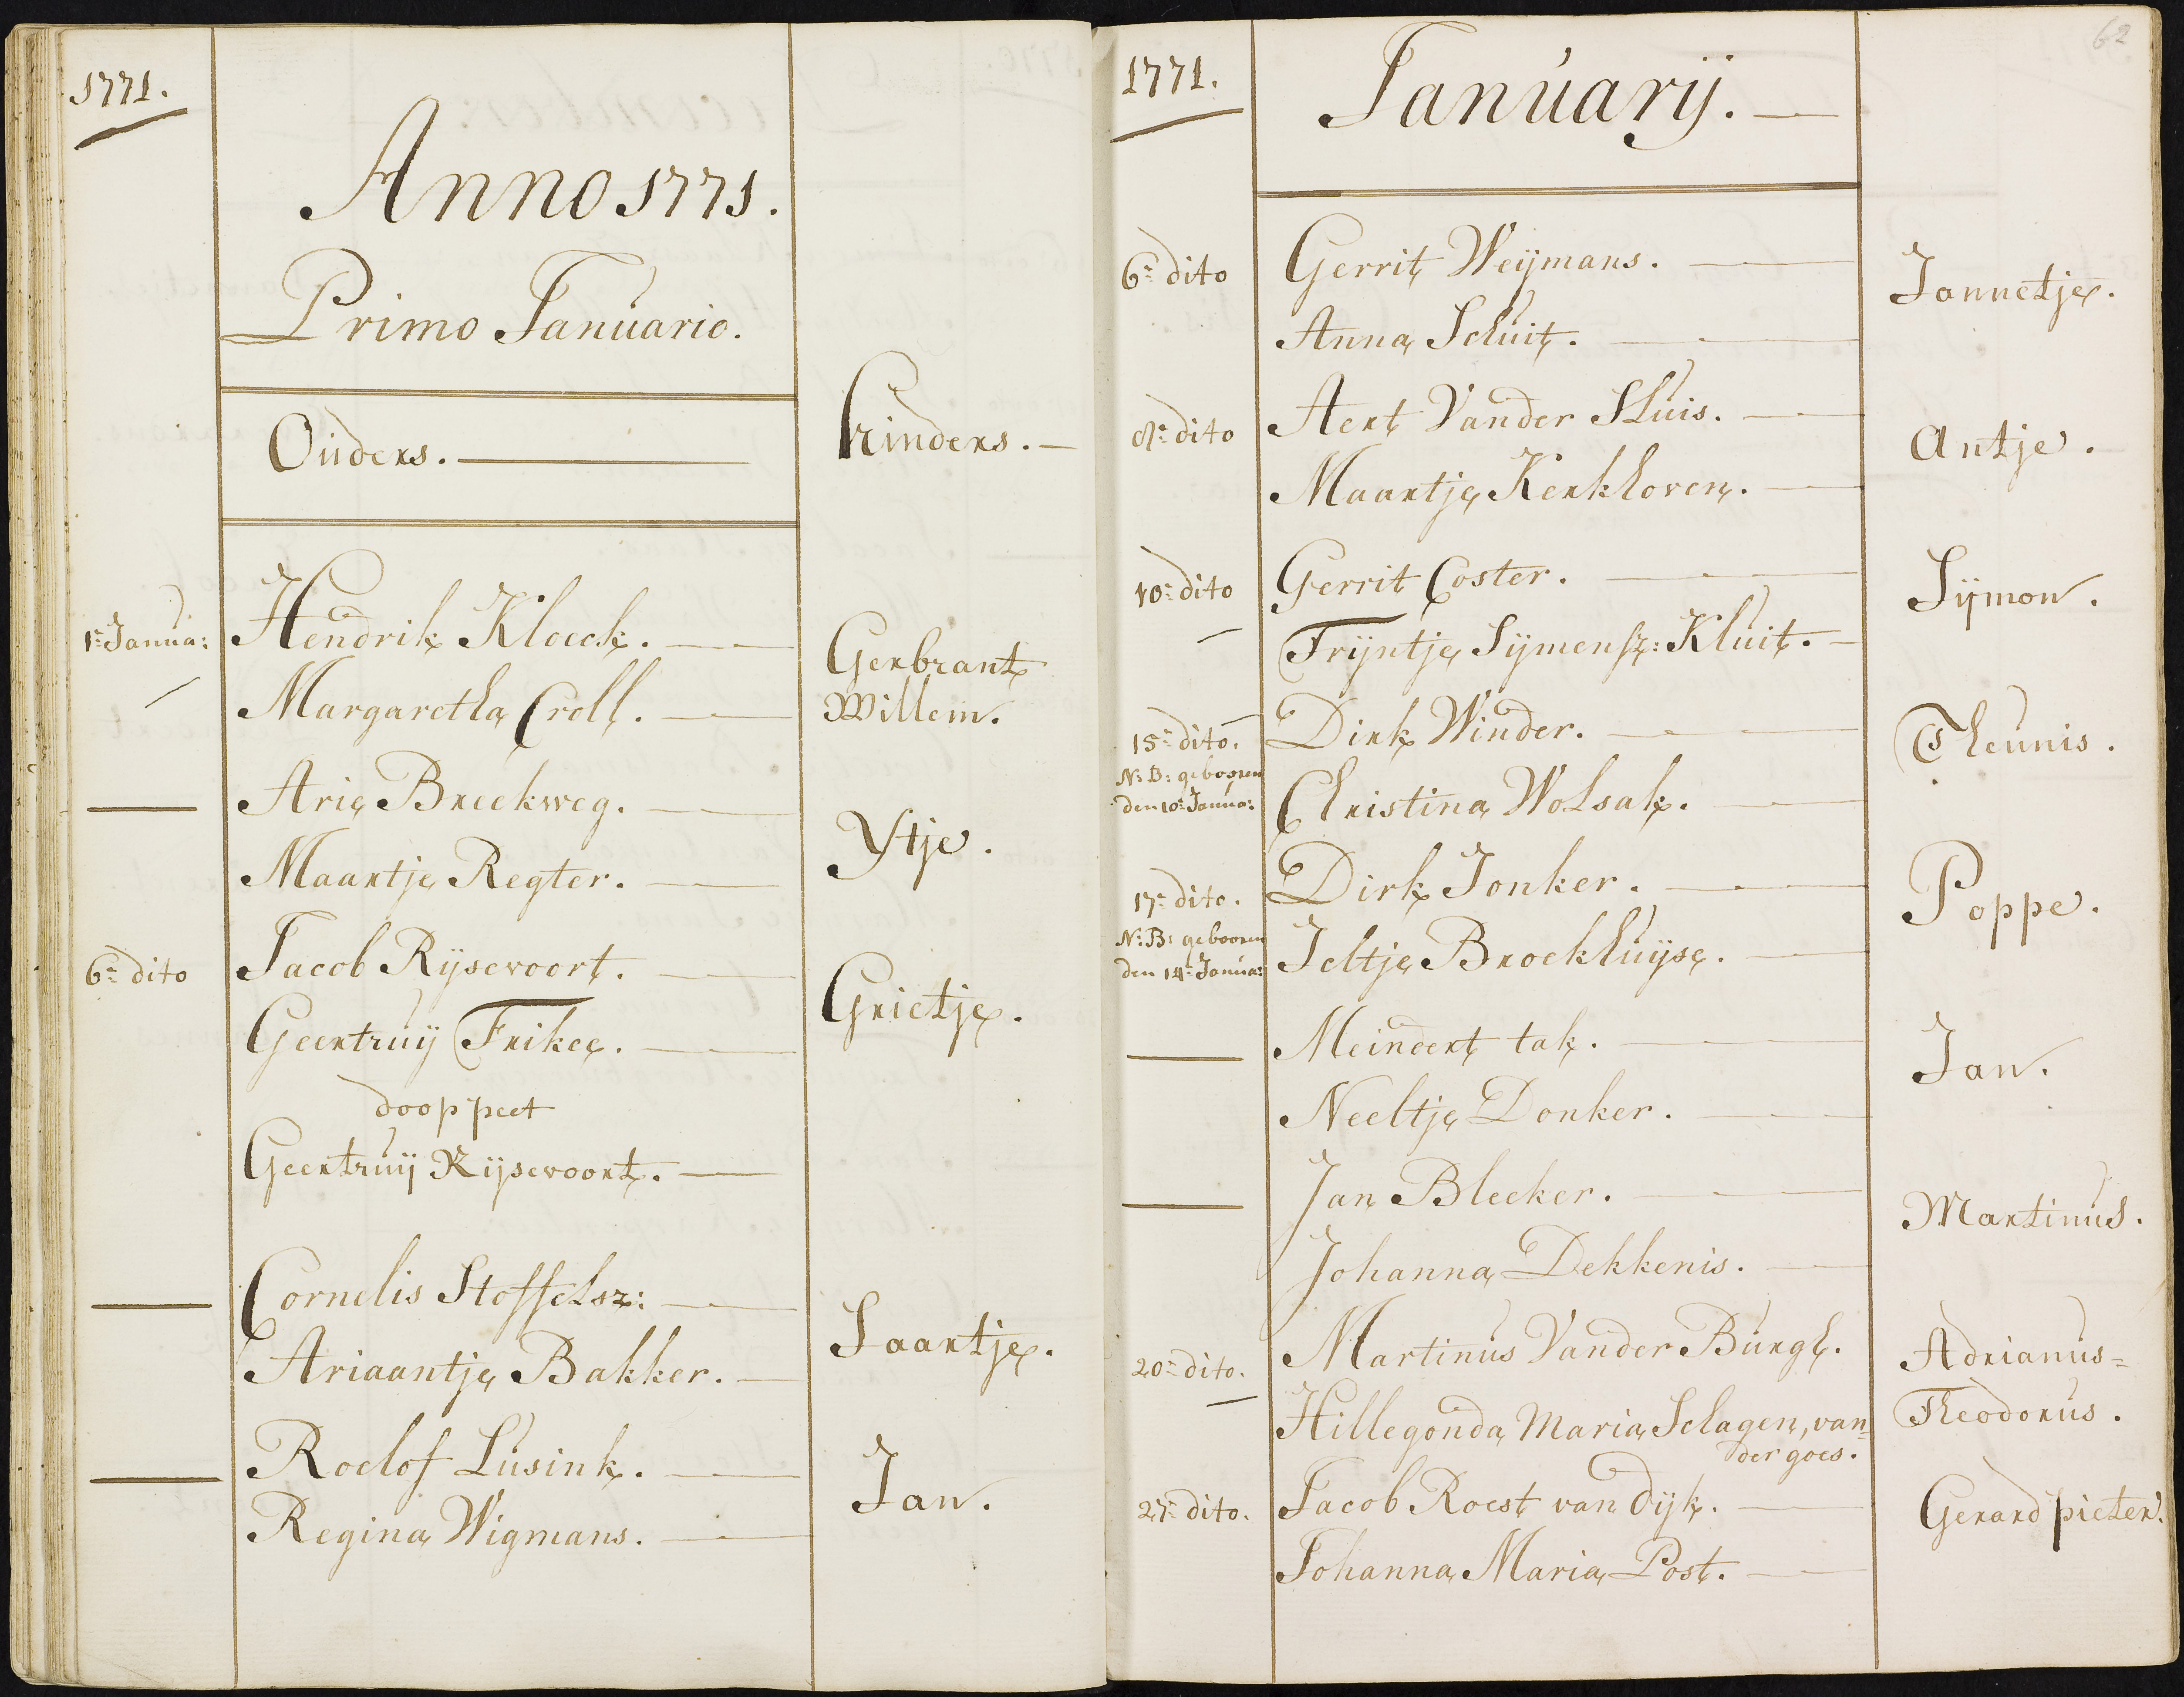 1771.
Anno 1771.
Primo Januario.
Oúders.
kinders.
1e Janua:
Hendrik Kloeck.
Margaretha Croll.
Gerbrant
Willem.
Arie Breekweg.
Maartje Regter.
Ytje.
6e dito
Jacob Rijsevoort.
Geertruij Frikee.
Grietje.
doop peet
Geertruij Rijsevoort.
Cornelis Stoffelsz:
Ariaantje Bakker.
Saartje.
Roelof Lúsink.
Regina Wigmans.
Jan.
62
1771.
Janúarij.
6e dito
Gerrit Weijmans.
Anna Schuit.
Jannetje.
8e dito
Aert Vander Sluis.
Maartje Kerkhoven.
Antje.
10e dito
Gerrit Coster.
Trijntje Sijmensz: Kluit.
Sijmon.
15e dito.
N:B: gebooren
den 10e Janua:
Dirk Winder.
Christina Wolsak.
Theunis.
17e dito.
N:B: gebooren
den 14e Janua:
Dirk Jonker.
Jeltje Broekhuijse.
Poppe.
Meindert tak.
Neeltje Donker.
Jan.
Jan Bleeker.
Johanna Dekkenis.
Martinus.
20e dito.
Martinus Vander Burgh.
Hillegonda Maria Schagen, van
der goes.
Adrianus=
Theodorus.
27e dito.
Jacob Roest van dijk.
Johanna Maria Post.
Gerard pieter.